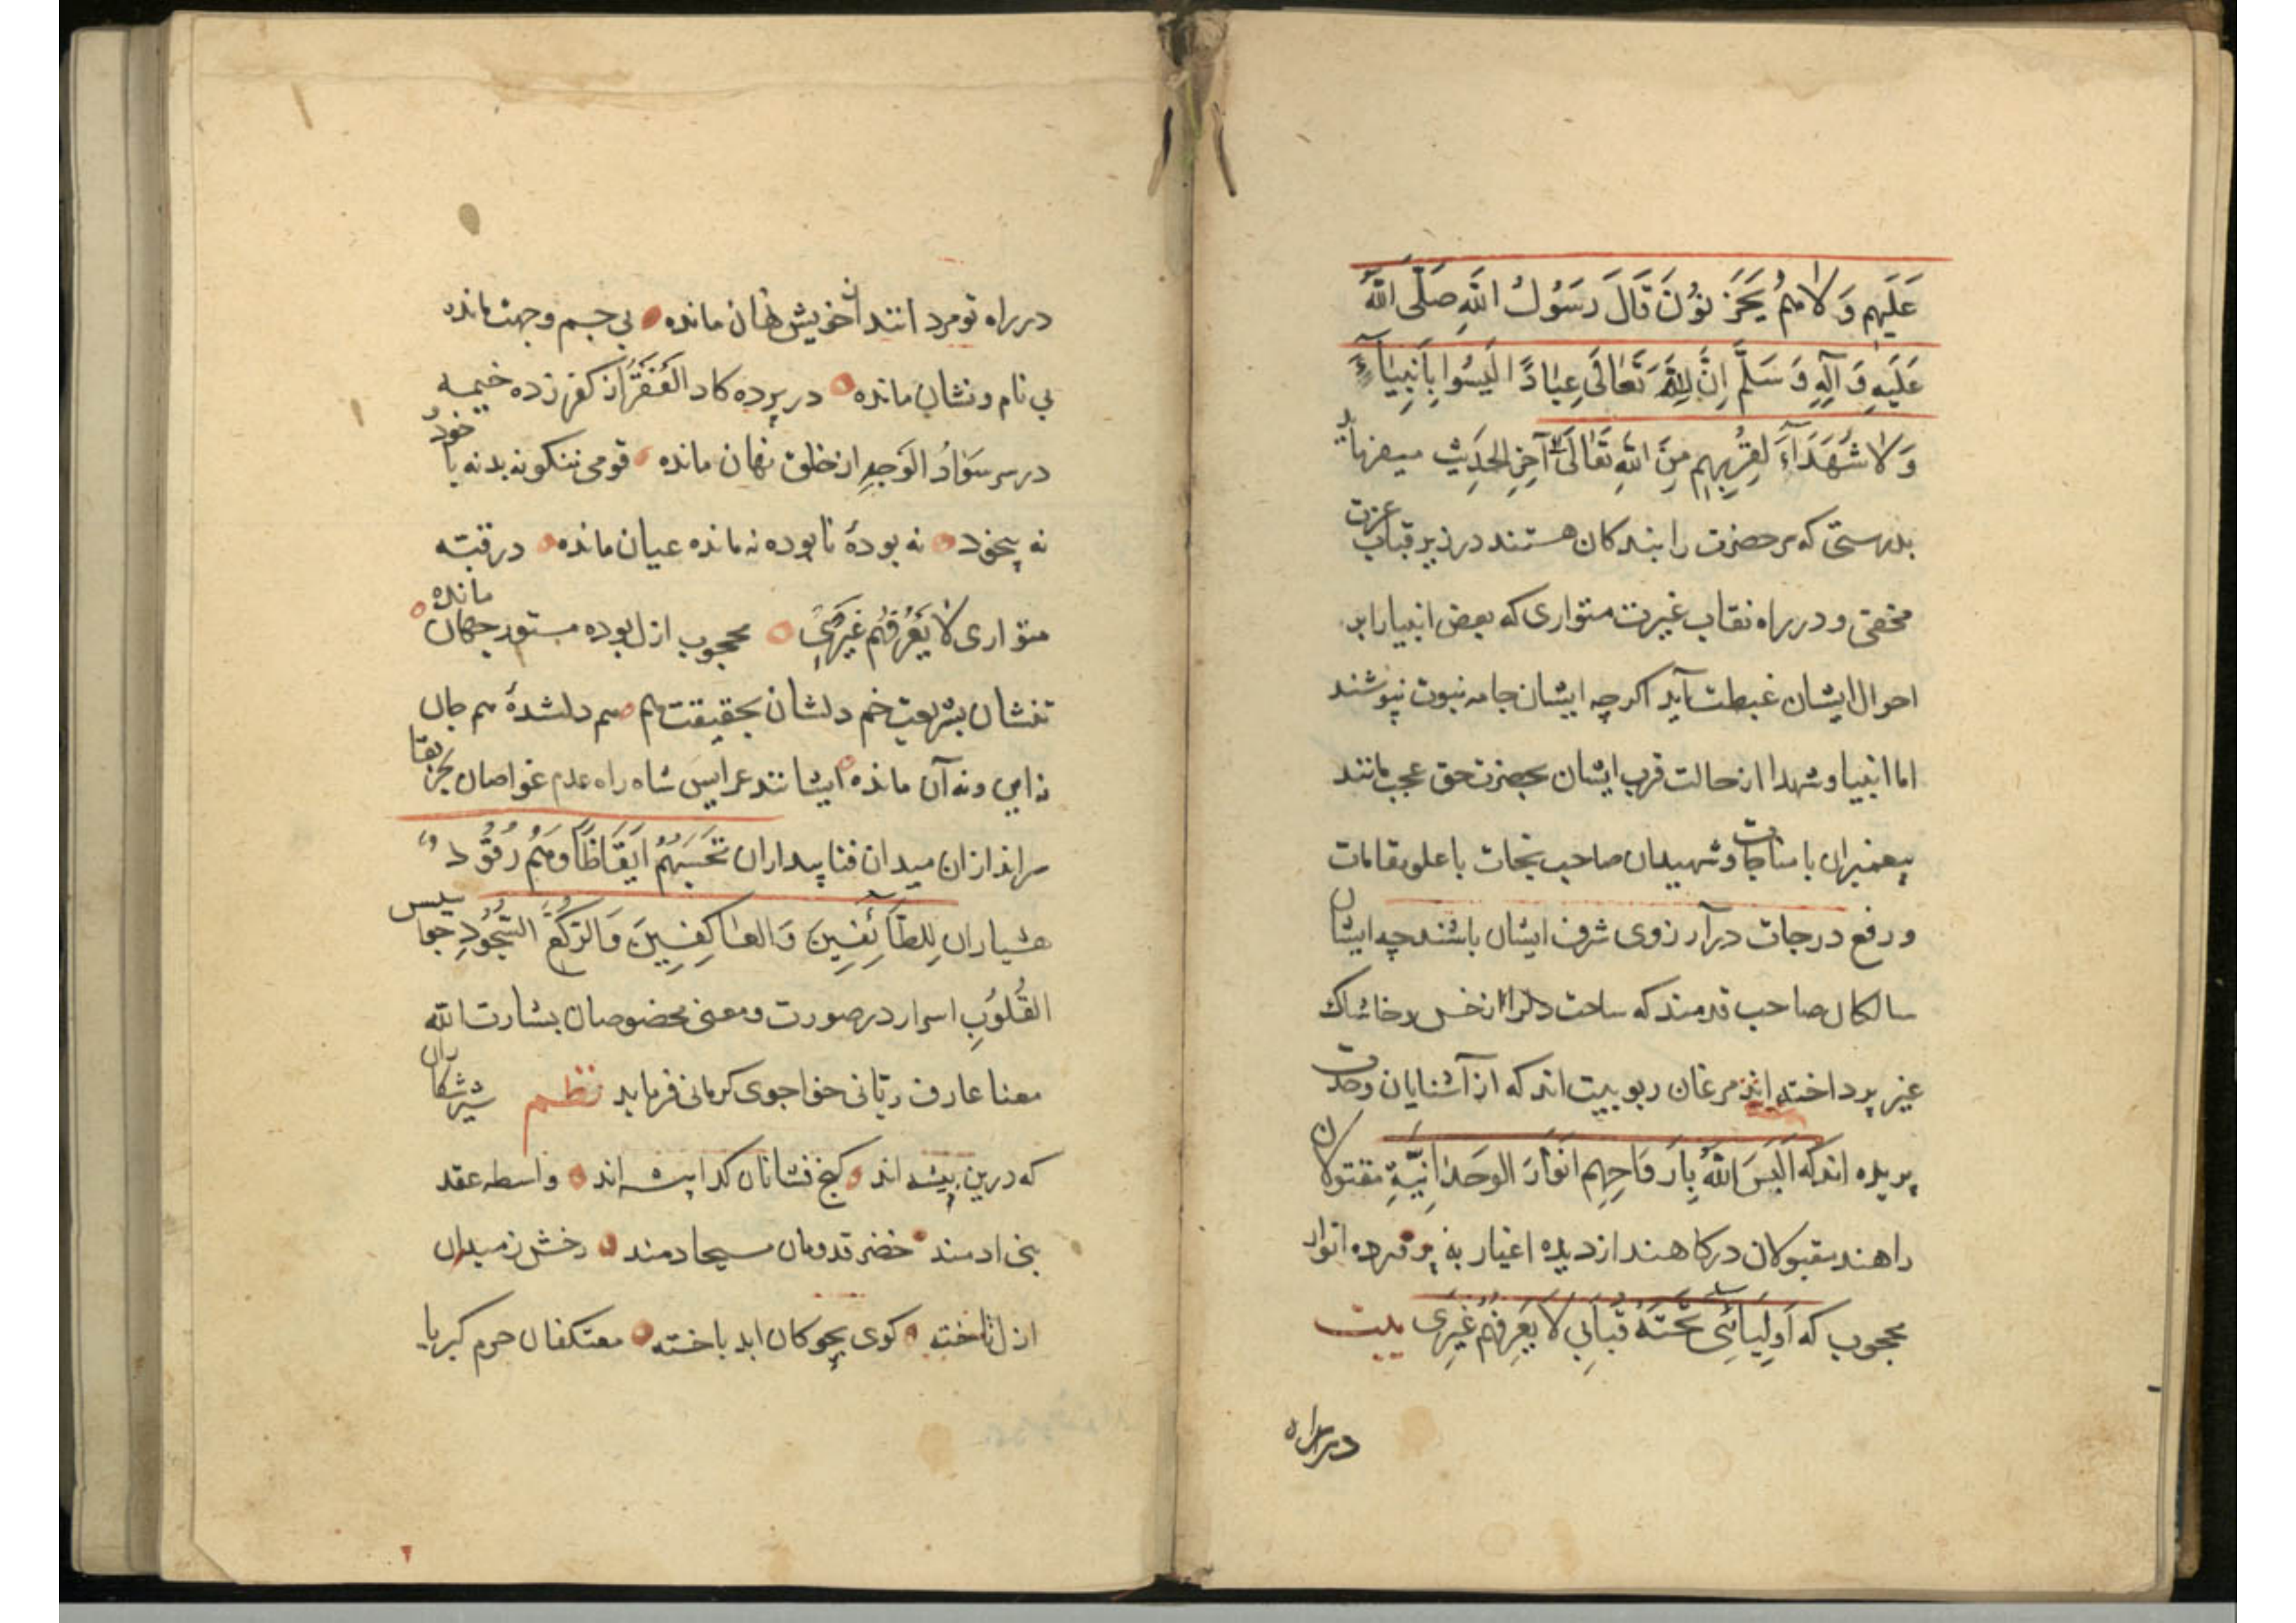 عَلَیهِم وَلا هُم یَحزَنوُنَ قَالَ رَسُولُ اللهِ صَلَّی اللهُ
عَلَیهِ وَ آلِهِ وَ سَلَّم اِنَّ لِلّهِ تَعَالَی عِبَادًا لَیسُوا بِاَنبِیَآءَ
وَلا شُهَدَآءَ لِقُربِهِم مِنَ اللهِ تَعَالَی آخِرِ الحَدِیث میفرماید
بدرستی که مر حضرت را بندکان هستند در زیر قباب عزت
مختفی و در راه نقاب غیرت متواری که بعض انبیا را بر
احوال ایشان غبطت آید اکرچه ایشان جامه نبوت نپوشند
اما انبیا و شهدا از حالت قرب ایشان بحضرت حق عجب مانند
پیغمبران با مناجات و شهیدان صاحب نجات با علو مقامات
و رفع درجات در آرزوی شرف ایشان باشند چه ایشان
سالکان صاحب قدمند که ساحت دلرا از خس و خاشاک
غیر پرداخته اند مرغان ربوبیت اند که از آشنایان وحدت
پریده اند که اَلبَسَ اللهُ بِاَروَاحِهِم اَنوَارَ الوَحدَانِیَّةِ مقتولان
راهند مقبولان درکاهند از دیده اغیار به پرده انوار
محجوب که اَولِیَائِی تَحتَ قُبَابِی لا یَعرِفُهُم غَیرِی بیت
در راه
در راه تو مردانند از خویش نهان مانده بی جسم و جهت مانده
بی نام و نشان مانده در پرده کاد الفَقرُ از کفر زده خیمه
در سر سَوَادُ الوَجهِ از خلق نهان مانده قومی نه نکو نه بد نه با خود
نه بیخود نه بودهٔ نابوده نه مانده عیان مانده در قبّه
متواری لا یَعرِفُهُم غَیرِی محجوب ازل بوده مستور جهان مانده
تنشان بشریعت خم دلشان بحقیقت هم هم دلشدهٔ هم جان
نه این و نه آن مانده ایشانند عرایس شاه راه عدم غواصان بحر بقا
سراندازان میدان فنا بیداران تَحسَبُهُم اَیقَاظًا وَهُم رُقُودٌ
هشیاران لِلطَّآئِفِینَ وَالعَاکِفِینَ وَالرُّکَّعِ السُّجُودِ جواسیس
القُلُوبِ اسرار در صورت و معنی مخصوصان بشارت الله
معنا عارف ربّانی خواجوی کرمانی فرماید نظم شیرشکاران
که درین بیشه اند کنج نشانان کدا پیشه اند واسطه عقد
بنی ادمند خضر قدومان مسیحا دمند رخش ز میدان
ازل تاخته کوی بچوکان ابد باخته معتکفان حرم کبریا